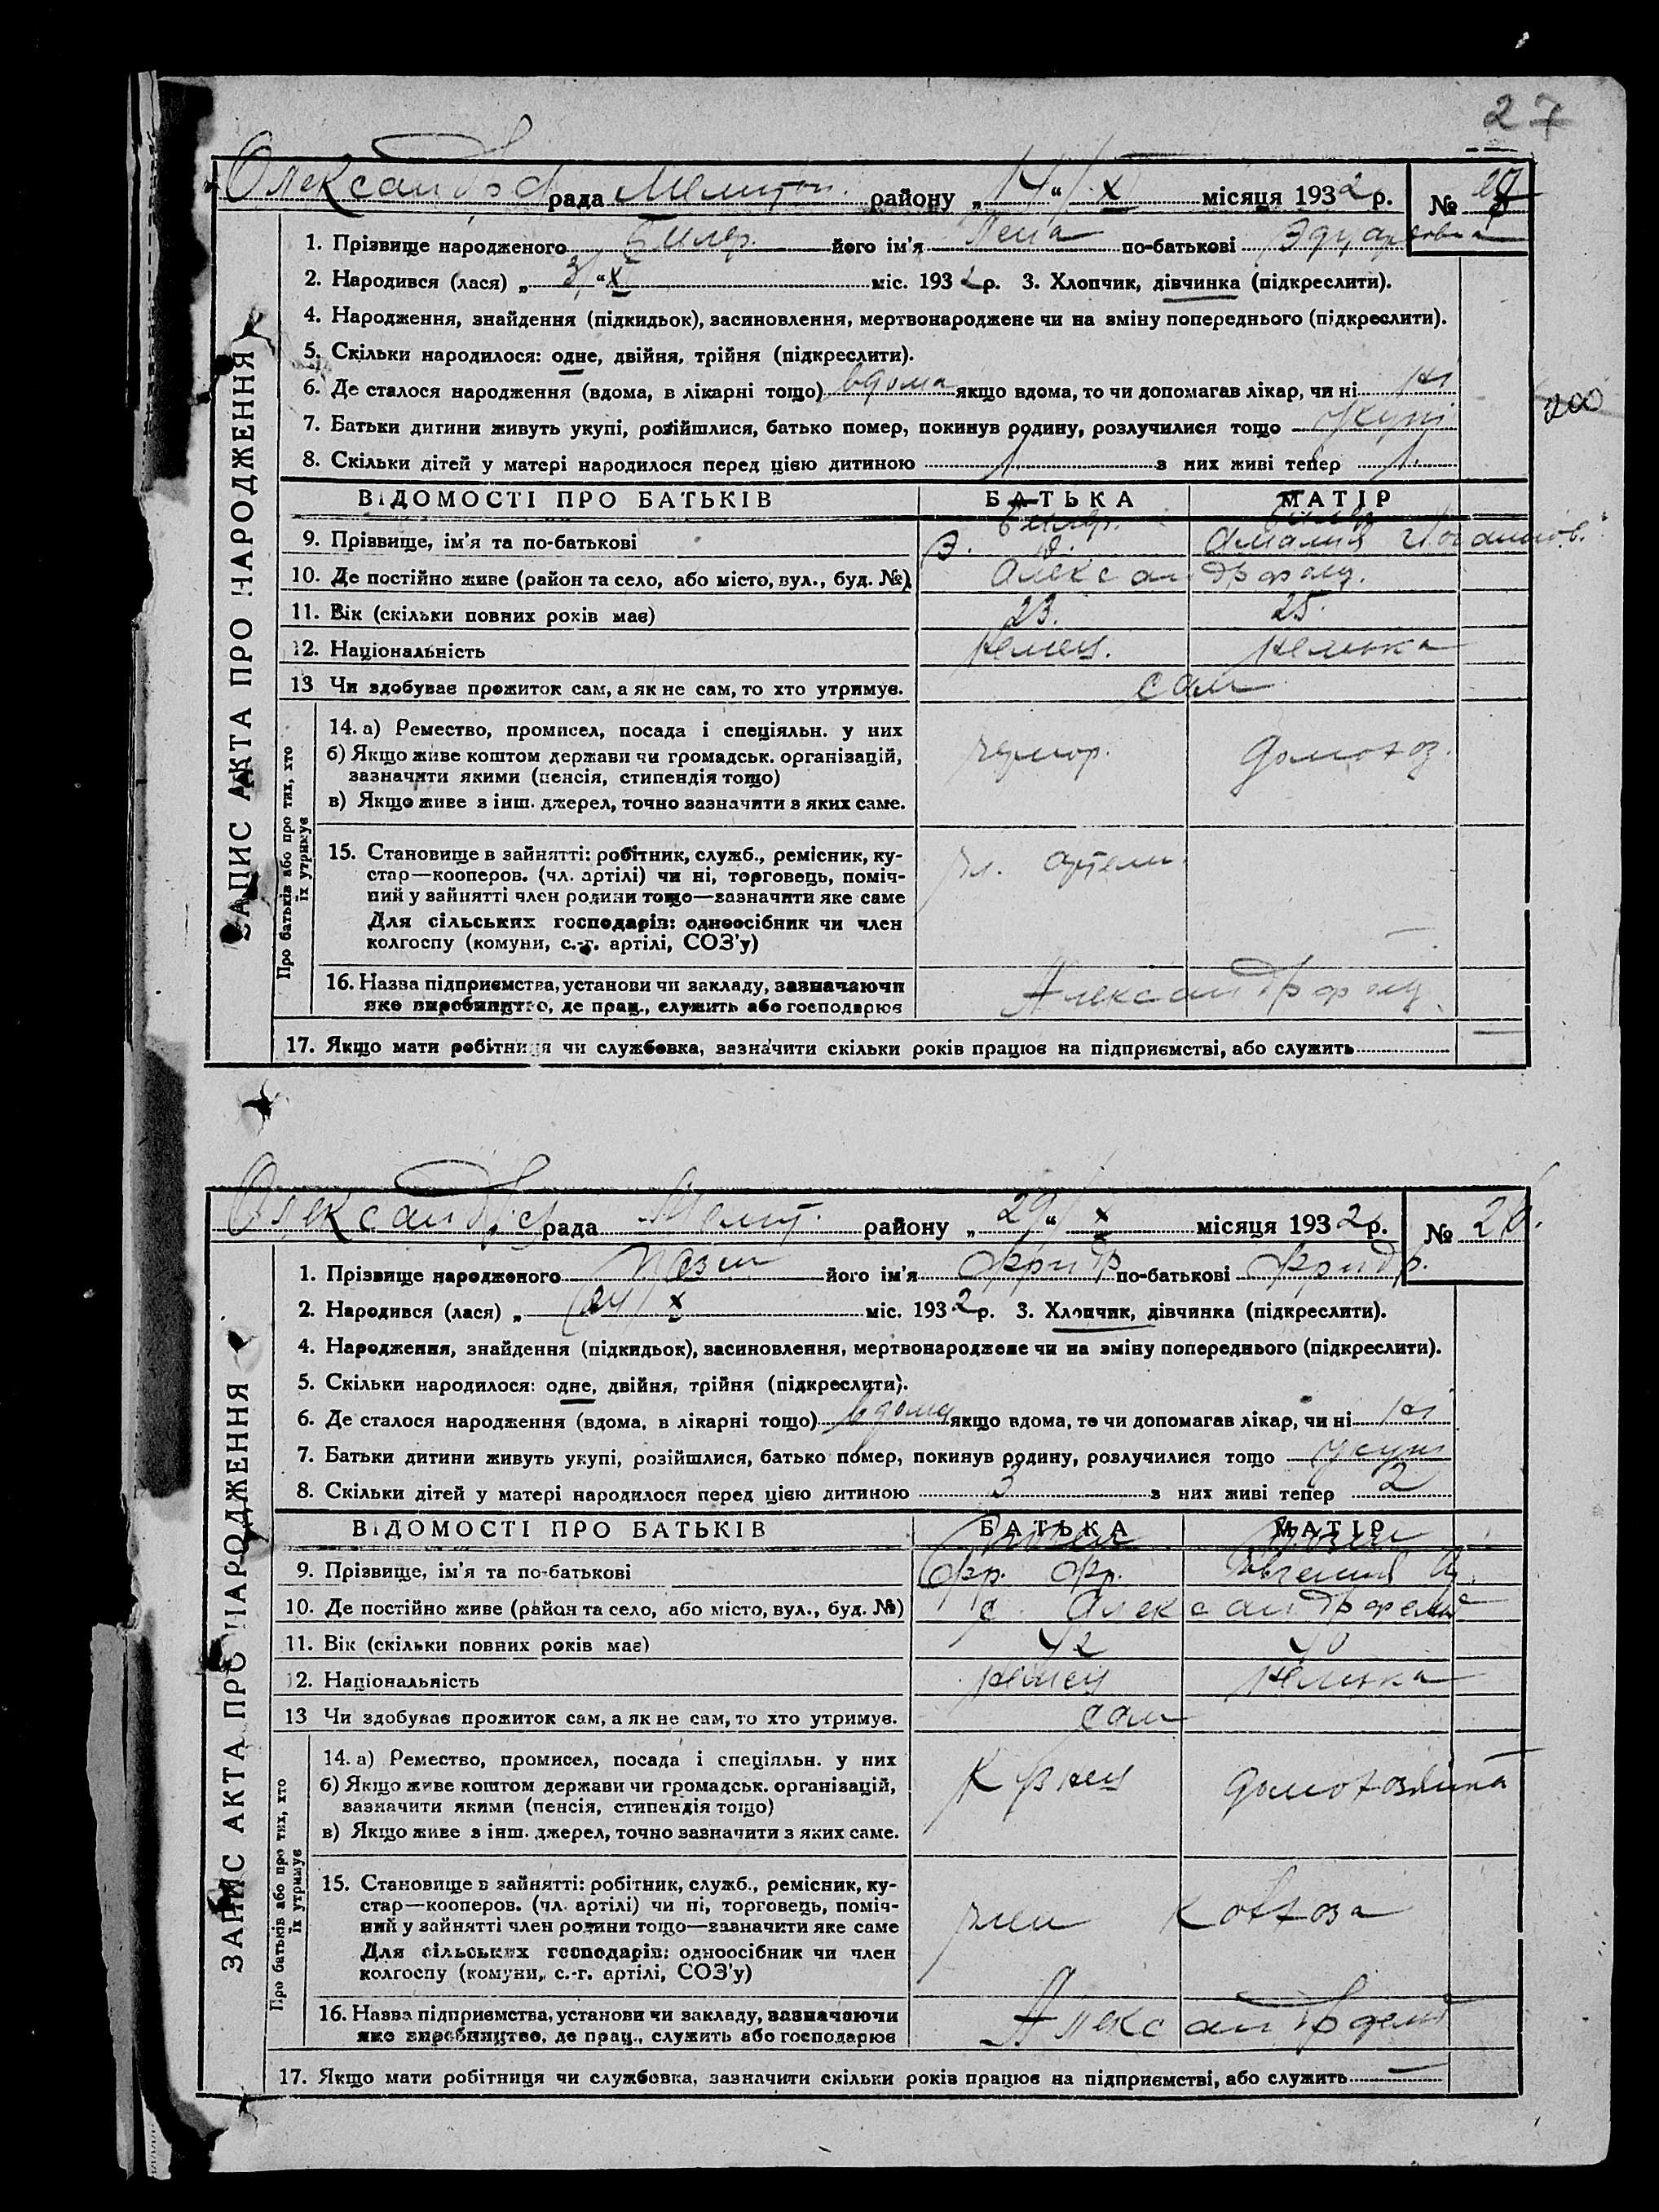 27
Олександрф рада Меліт. району „14“ X місяця 1932 р. №
1. Прізвище народженого його ім'я Лена по-батькові Эдуардовна
2. Народився (лася) „3“ X міс. 1932 р. 3. Хлопчик, дівчинка (підкреслити).
4. Народження, знайдення (підкидьок), засиновлення, мертвонароджене чи на зміну попереднього (підкреслити).
5. Скільки народилося: одне, двійня, трійня (підкреслити).
6. Де сталося народження (вдома, в лікарні тощо) вдома якщо вдома, то чи допомагав лікар, чи ні ні
200
7. Батьки дитини живуть укупі, розійшлися, батько помер, покинув родину, розлучилися тощо укупі
8. Скільки дітей у матері народилося перед цією дитиною 1 з них живі тепер 1
ВІДОМОСТІ ПРО БАТЬКІВ БАТЬКА МАТІР
9. Прізвище, ім'я та по-батькові Амалия
10. Де постійно живе (район та село, або місто, вул., буд. №) Александрфельд.
11. Вік (скільки повних років має) 23. 25.
12. Національність немец. немка
13 Чи здобуває прожиток сам, а як не сам, то хто утримує. сам
ЗАПИС АКТА ПРО НАРОДЖЕННЯ
Про батьків або про тих, хто
їх утримує
14. а) Ремество, промисел, посада і спеціяльн. у них домохоз.
б) Якщо живе коштом держави чи громадськ. організацій,
зазначити якими (пенсія, стипендія тощо)
в) Якщо живе з інш. джерел, точно зазначити з яких саме.
15. Становище в зайнятті: робітник, служб., ремісник, ку-
стар—кооперов. (чл. артілі) чи ні, торговець, поміч-
ний у зайнятті член родини тощо—зазначити яке саме
чл. артели
Для сільських господарів: одноосібник чи член
колгоспу (комуни, с.-г. артілі, СОЗ'у)
16. Назва підприємства, установи чи закладу, зазначаючи
яке виробництво, де прац., служить або господарює
Александрфельд
17. Якщо мати робітниця чи службовка, зазначити скільки років працює на підприємстві, або служить —
Олександрф рада Меліт. району „29“ X місяця 1932 р. № 28.
1. Прізвище народженого його ім'я Фридр по-батькові Фридр.
2. Народився (лася) „24“ X міс. 1932 р. 3. Хлопчик, дівчинка (підкреслити).
4. Народження, знайдення (підкидьок), засиновлення, мертвонароджене чи на зміну попереднього (підкреслити).
5. Скільки народилося: одне, двійня, трійня (підкреслити).
6. Де сталося народження (вдома, в лікарні тощо) вдома якщо вдома, то чи допомагав лікар, чи ні ні
7. Батьки дитини живуть укупі, розійшлися, батько помер, покинув родину, розлучилися тощо укупі
8. Скільки дітей у матері народилося перед цією дитиною 3 з них живі тепер 2
ВІДОМОСТІ ПРО БАТЬКІВ БАТЬКА МАТІР
9. Прізвище, ім'я та по-батькові Фр. Фр.
10. Де постійно живе (район та село, або місто, вул., буд. №) с Александрфельд
11. Вік (скільки повних років має) 42 40
12. Національність немец немка
13 Чи здобуває прожиток сам, а як не сам, то хто утримує. сам
ЗАПИС АКТА ПРО НАРОДЖЕННЯ
Про батьків або про тих, хто
їх утримує
14. а) Ремество, промисел, посада і спеціяльн. у них
б) Якщо живе коштом держави чи громадськ. організацій,
зазначити якими (пенсія, стипендія тощо)
домохозяйка
в) Якщо живе з інш. джерел, точно зазначити з яких саме.
15. Становище в зайнятті: робітник, служб., ремісник, ку-
стар—кооперов. (чл. артілі) чи ні, торговець, поміч-
ний у зайнятті член родини тощо—зазначити яке саме
член колхоза
Для сільських господарів: одноосібник чи член
колгоспу (комуни, с.-г. артілі, СОЗ'у)
16. Назва підприємства, установи чи закладу, зазначаючи
яке виробництво, де прац., служить або господарює
Александрфельд
17. Якщо мати робітниця чи службовка, зазначити скільки років працює на підприємстві, або служить —